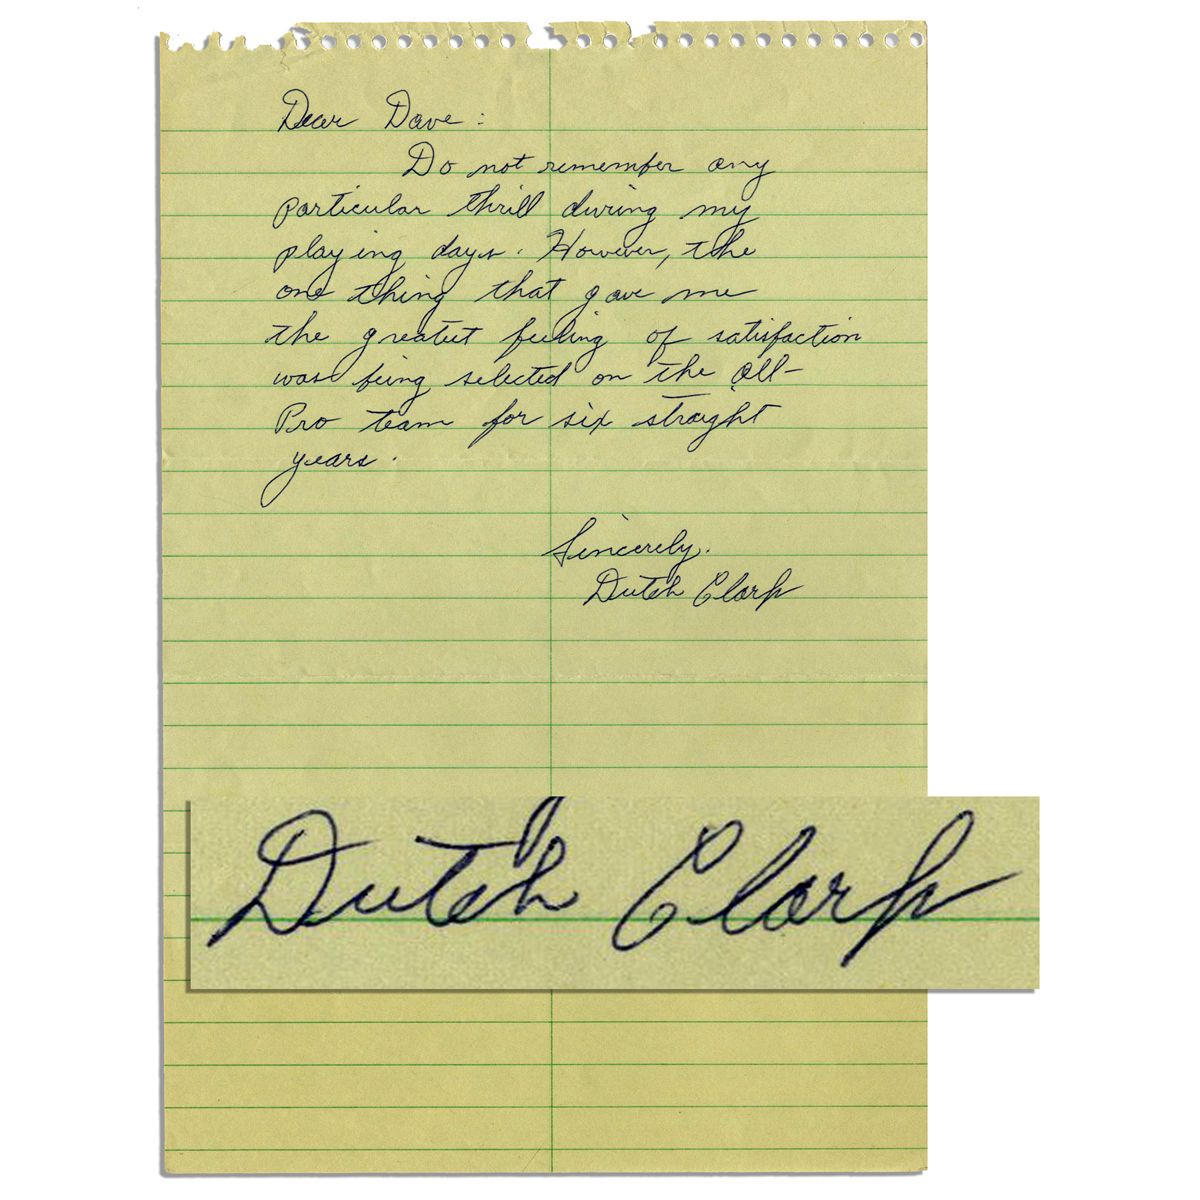 Dear Dave:
Do not remember any
particular thrill during my
playing days. However, the
one thing that gave me
the greatest feeling of satisfaction
was being selected on the all-
Pro team for six straight
years.
Sincerely,
Dutch Clark
Dutch Clark